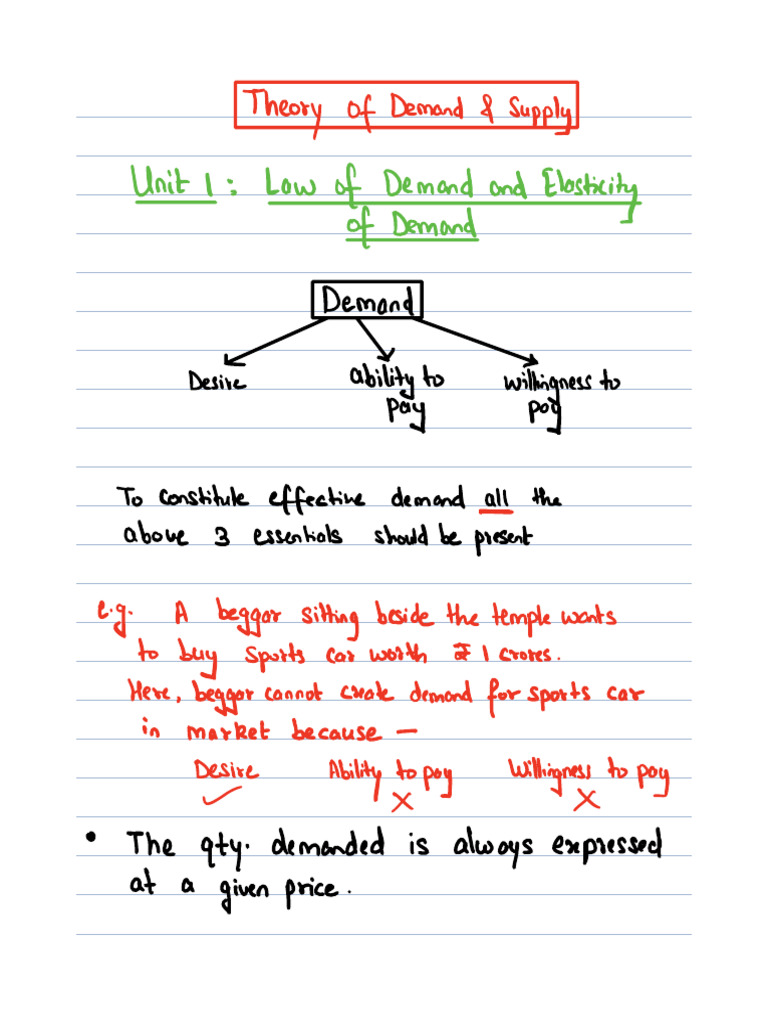 Theory of Demand & Supply
Unit 1: Law of Demand and Elasticity
of Demand
Demand
Desire ability to willingness to
pay pay
To constitute effective demand all the
above 3 essentials should be present
e.g. A beggar sitting beside the temple wants
to buy sports car worth ₹ 1 crores.
Here, beggar cannot create demand for sports car
in market because —
Desire Ability to pay Willingness to pay
✓ X X
• The qty. demanded is always expressed
at a given price.